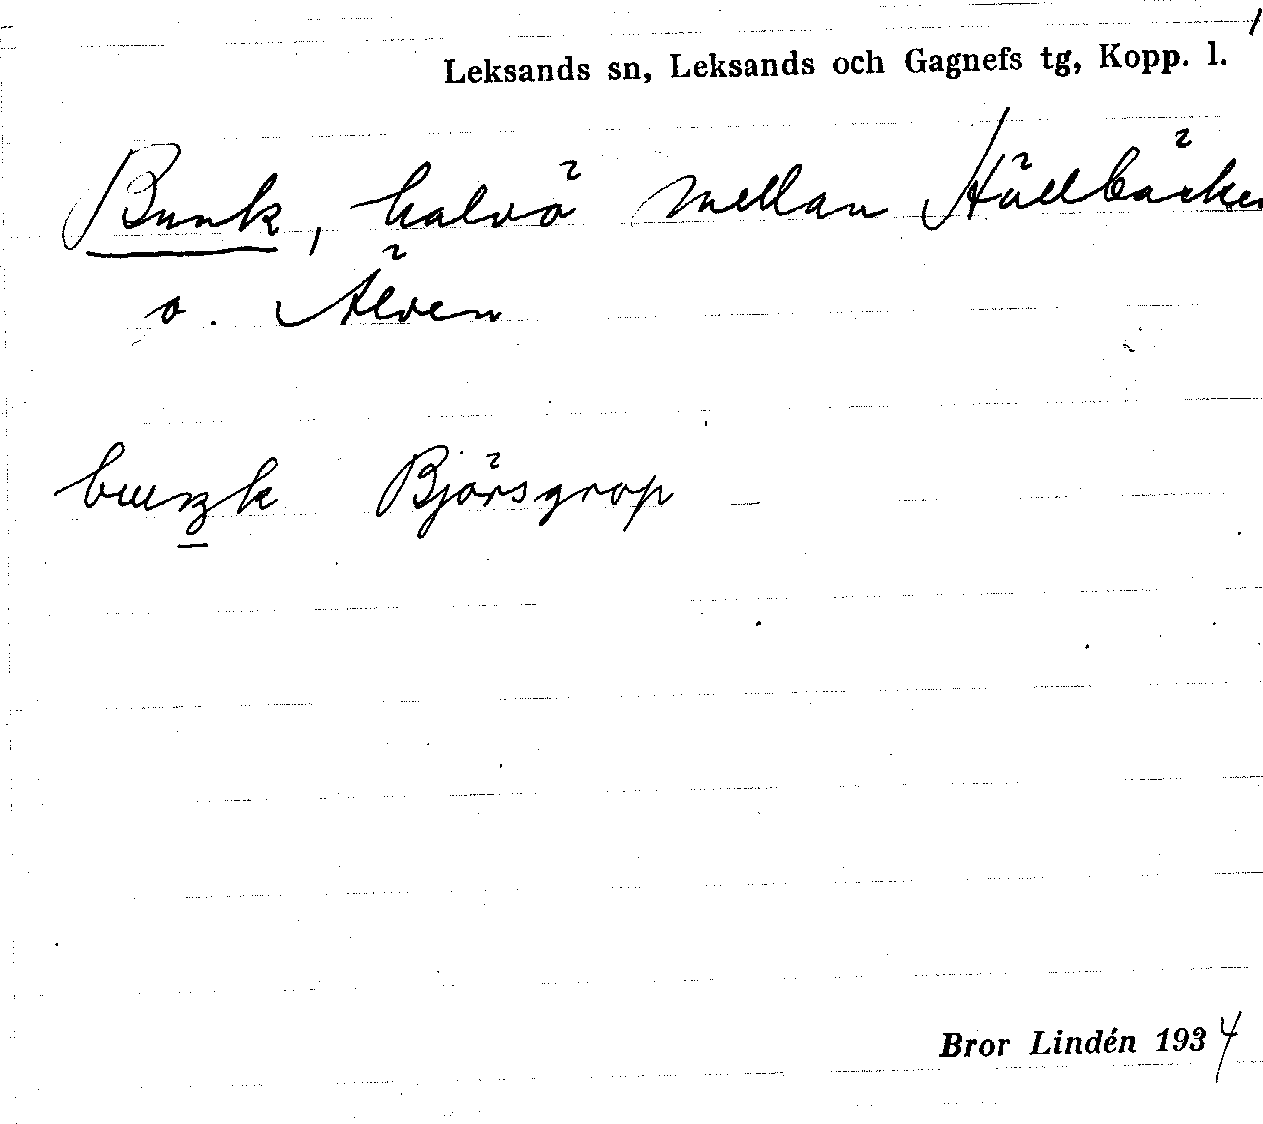 Leksands sn, Leksands och Gagnefs tg, Kopp. l.
Bunk, halvö mellan Hällbäcken
o. Älven
Björsgrop
Bror Lindén 1934